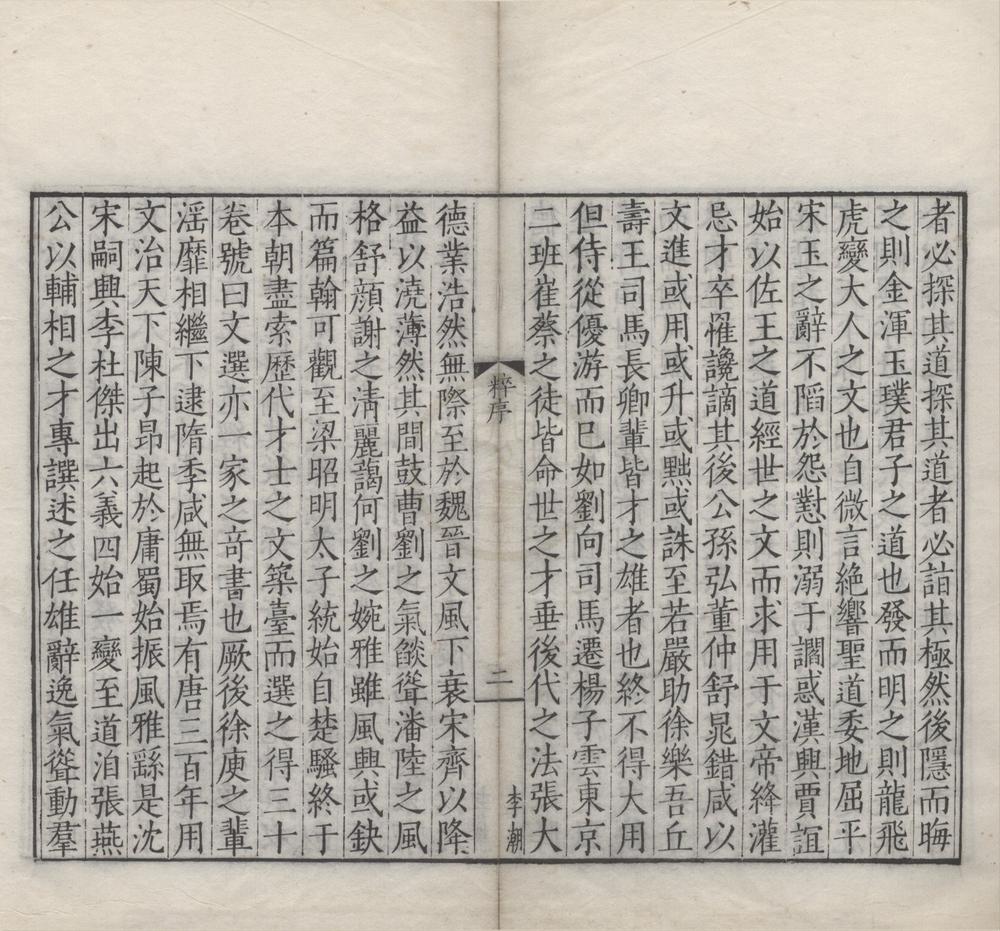 者必探其道探其道者必詣其極然後隱而晦
之則金渾玉璞君子之道也發而明之則龍飛
虎變大人之文也自微言絶響聖道委地屈平
宋玉之辭不䧟於怨懟則溺于讇惑漢興賈誼
始以佐王之道經世之文而求用于文帝絳灌
忌才卒罹讒謫其後公孫弘董仲舒晁錯咸以
文進或用或升或黜或誅至若嚴助徐樂吾丘
壽王司馬長卿輩皆才之雄者也終不得大用
但侍從優游而已如劉向司馬遷楊子雲東京
二班崔蔡之徒皆命世之才垂後代之法張大
粹序
二
李潮
德業浩然無際至於魏晉文風下衰宋齊以降
益以澆薄然其間鼓曹劉之氣燄聳潘陸之風
格舒顔謝之清麗藹何劉之婉雅雖風興或缺
而篇翰可觀至梁昭明太子統始自楚騷終于
本朝盡索歷代才士之文築臺而選之得三十
卷號曰文選亦一家之竒書也厥後徐庾之輩
淫靡相繼下逮隋季咸無取焉有唐三百年用
文治天下陳子昂起於庸蜀始振風雅繇是沈
宋嗣興李杜傑出六義四始一變至道洎張燕
公以輔相之才專譔述之任雄辭逸氣聳動羣